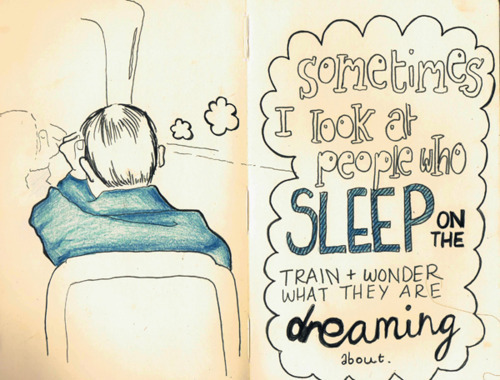 sometimes
I look at
people who
SLEEP ON
THE
TRAIN + WONDER
WHAT THEY ARE
dreaming
about.